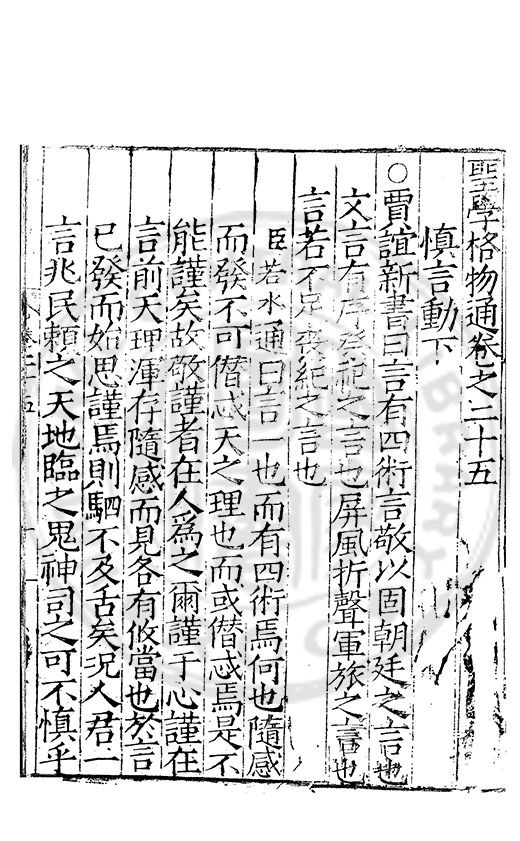 聖學格物通卷之二十五
慎言動下
○賈誼新書曰言有四術言敬以固朝廷之言也
文言有序祭祀之言也屏風折聲軍旅之言也
言若不足喪紀之言也
臣若水通曰言一也而有四術焉何也隨感
而發不可僣忒天之理也而或僣忒焉是不
能謹矣故敬謹者在人爲之爾謹于心謹在
言前天理渾存隨感而見各有攸當也於言
已發而始思謹焉則駟不及舌矣况人君一
言兆民賴之天地臨之鬼神司之可不慎乎
卷二十五